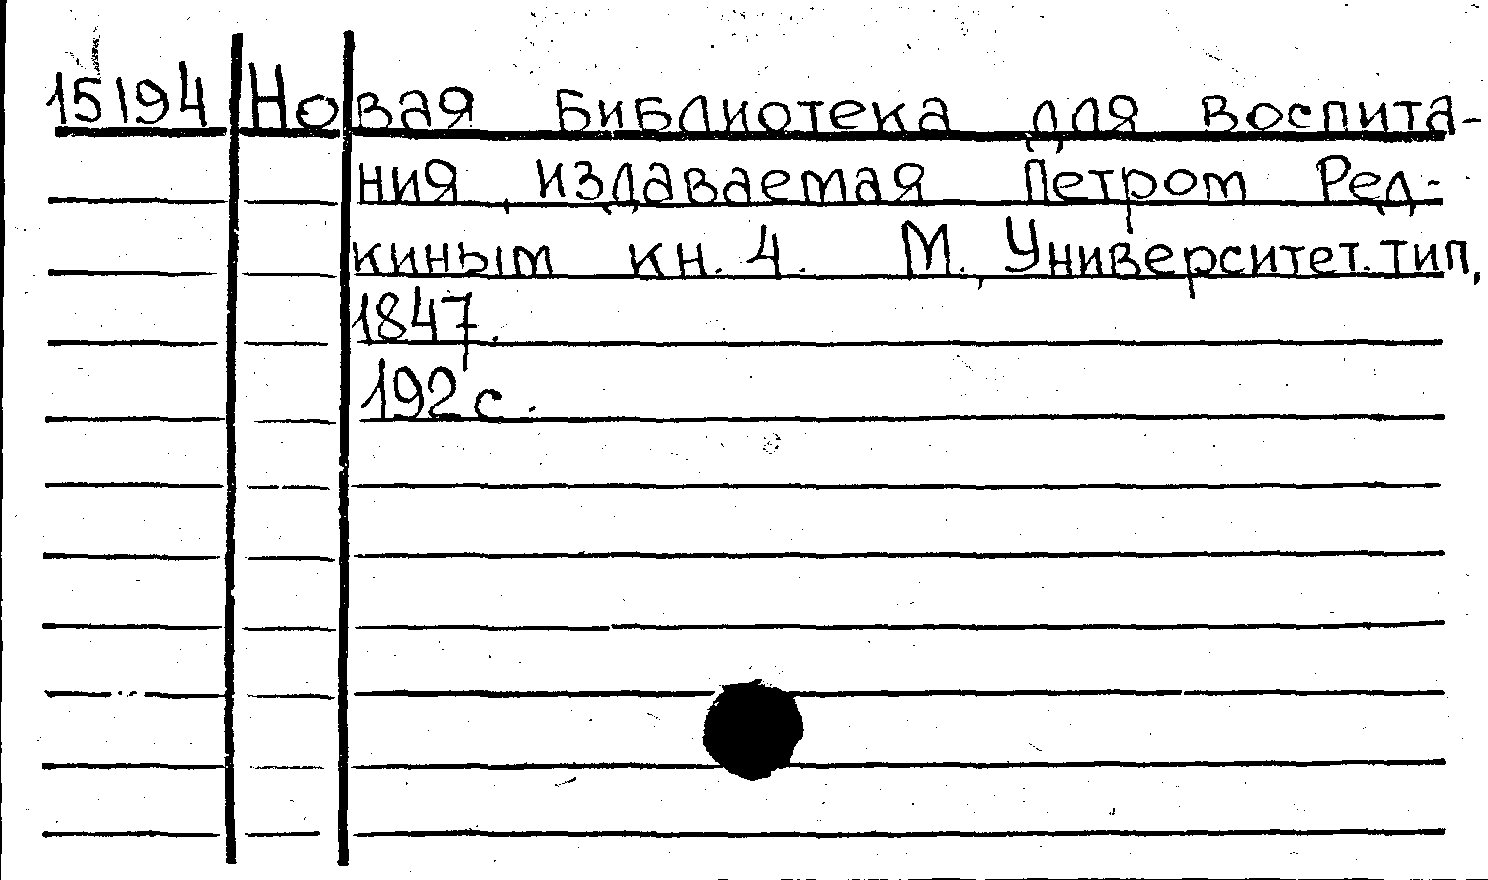 15194 Новая Библиотека для воспита-
ния, издаваемая Петром Ред-
киным кн. 4. М., Университет. тип,
1847.
192 с.